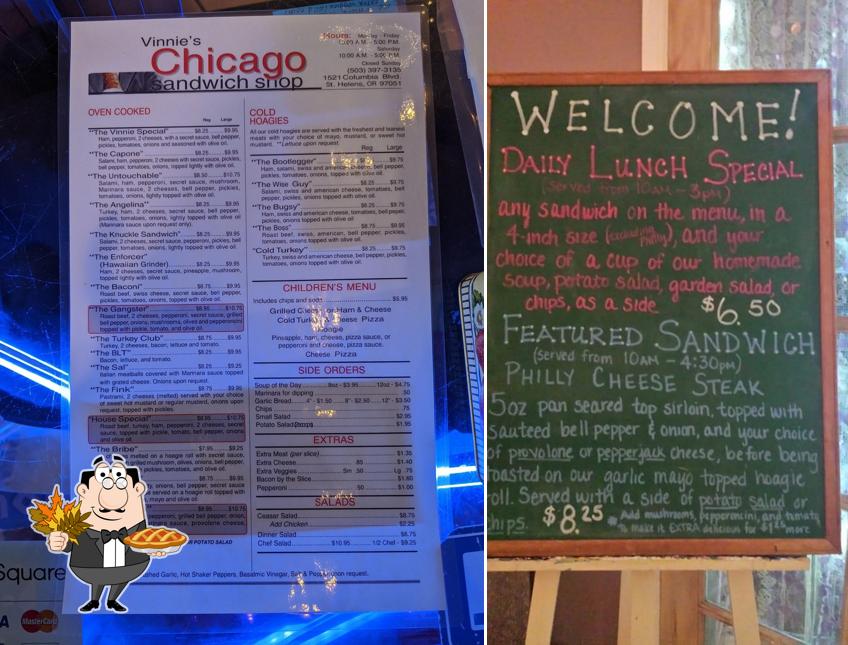 Vinnie's
Chicago
sandwich shop
Hours: Monday - Friday
10:00 A.M. - 5:00 P.M.
Saturday
10:00 A.M. - 5:00 P.M.
Closed Sunday
(503) 397-3135
1521 Columbia Blvd.
St. Helens, OR 97051
OVEN COOKED
Reg Large
"The Vinnie Special" $8.25 $9.95
Ham, pepperoni, 2 cheeses, with a secret sauce, bell pepper,
pickles, tomatoes, onions and seasoned with olive oil.
"The Capone" $8.25 $9.95
Salami, ham, pepperoni, 2 cheeses with secret sauce, pickles,
bell pepper, tomatoes, onions, topped lightly with olive oil.
"The Untouchable" $8.50 $10.75
Salami, ham, pepperoni, secret sauce, mushroom,
Marinara sauce, 2 cheeses, bell pepper, pickles,
tomatoes, onions, lightly topped with olive oil.
"The Angelina" $8.25 $9.95
Turkey, ham, 2 cheese, secret sauce, bell pepper,
pickles, tomatoes, onions, lightly topped with olive oil
(Marinara sauce upon request only).
"The Knuckle Sandwich" $8.25 $9.95
Salami, 2 cheeses, secret sauce, pepperoni, pickles, bell
pepper, tomatoes, onions, lightly topped with olive oil.
"The Enforcer"
(Hawaiian Grinder) $8.25 $9.95
Ham, 2 cheese, secret sauce, pineapple, mushroom,
topped lightly with olive oil.
"The Baconi" $8.25 $9.95
Roast beef, swiss cheese, secret sauce, bell pepper,
pickles, tomatoes, onions, topped with olive oil.
"The Gangster" $8.95 $10.75
Roast beef, 2 cheeses, pepperoni, secret sauce, grilled
bell pepper, onions, mushrooms, olives and pepperoncini
topped with pickle, tomato, and olive oil.
"The Turkey Club" $8.75 $9.95
Turkey, 2 cheeses, bacon, lettuce and tomato.
"The BLT" $8.25 $9.95
Bacon, lettuce, and tomato.
"The Sal" $8.25 $9.95
Italian meatballs covered with Marinara sauce topped
with grated cheese. Onions upon request.
"The Fink" $8.75 $9.95
Pastrami, 2 cheeses (melted) served with your choice
of sweet hot mustard or regular mustard, onions upon
request, topped with pickles.
"House Special" $8.95 $10.75
Roast beef, turkey, ham, pepperoni, 2 cheeses, secret
sauce, topped with pickle, tomato, bell pepper, onions
and olive oil.
"The Bribe" $7.95 $9.25
melted on a hoagie roll with secret sauce,
grilled mushroom, olives, onions, bell pepper,
pickles, tomatoes, and olive oil.
$8.75 $9.95
onions, bell pepper, secret sauce
served on a hoagie roll topped with
mayo and olive oil.
$8.95 $10.75
pepperoni, grilled bell pepper, onion,
Marinara sauce, provolone cheese,
OR POTATO SALAD
COLD
HOAGIES
All our cold hoagies are served with the freshest and leanest
meats with your choice of mayo, mustard, or sweet hot
mustard. "Lettuce upon request.
Reg Large
"The Bootlegger" $9.75
Ham, salami, swiss and american cheese, bell pepper,
pickles, tomatoes, onions, topped with olive oil.
"The Wise Guy" $8.25 $9.75
Salami, swiss and american cheese, tomatoes, bell
pepper, pickles, onions topped with olive oil.
"The Bugsy" $8.25 $9.75
Ham, swiss and american cheese, tomatoes, bell pepper,
pickles, onions topped with olive oil.
"The Boss" $8.25 $9.75
Roast beef, swiss, american, bell pepper, pickles,
tomatoes, onions topped with olive oil.
"Cold Turkey" $8.25 $9.75
Turkey, swiss and american cheese, bell pepper, pickles,
tomatoes, onions topped with olive oil.
CHILDREN'S MENU
Includes chips and soda $5.95
Grilled Cheese or Ham & Cheese
Cold Turkey Cheese Pizza
Hoogie
Pineapple, ham, cheese, pizza sauce, or
pepperoni and cheese, pizza sauce.
Cheese Pizza
SIDE ORDERS
Soup of the Day 8oz - $3.95 12oz - $4.75
Marinara for dipping .50
Garlic Bread 4" - $1.50 8" - $2.50 12" - $3.50
Chips .75
Small Salad $2.95
Potato Salad $1.95
EXTRAS
Extra Meat (per slice) $1.35
Extra Cheese .85 $1.40
Extra Veggies Sm .50 Lg .75
Bacon by the Slice $1.60
Pepperoni .50 $1.00
SALADS
Ceasar Salad $8.75
Add Chicken $2.25
Dinner Salad $8.75
Chef Salad $10.95 1/2 Chef - $9.25
Crushed Garlic, Hot Shaker Peppers, Balsalmic Vinegar, Salt & Pepper upon request.
Square
VISA MasterCard
WELCOME!
DAILY LUNCH SPECIAL
(served from 10AM - 3PM)
any sandwich on the menu, in a
4-inch size (excluding Philly), and your
choice of a cup of our homemade
soup, potato salad, garden salad, or
chips, as a side $6.50
FEATURED SANDWICH
(served from 10AM - 4:30PM)
PHILLY CHEESE STEAK
5oz pan seared top sirloin, topped with
sauteed bell pepper & onion, and your choice
of provolone or pepperjack cheese, before being
toasted on our garlic mayo topped hoagie
roll. Served with a side of potato salad or
chips. $8.25 * Add mushrooms, pepperoncini, and tomato
to make it EXTRA delicious for $1.25 more